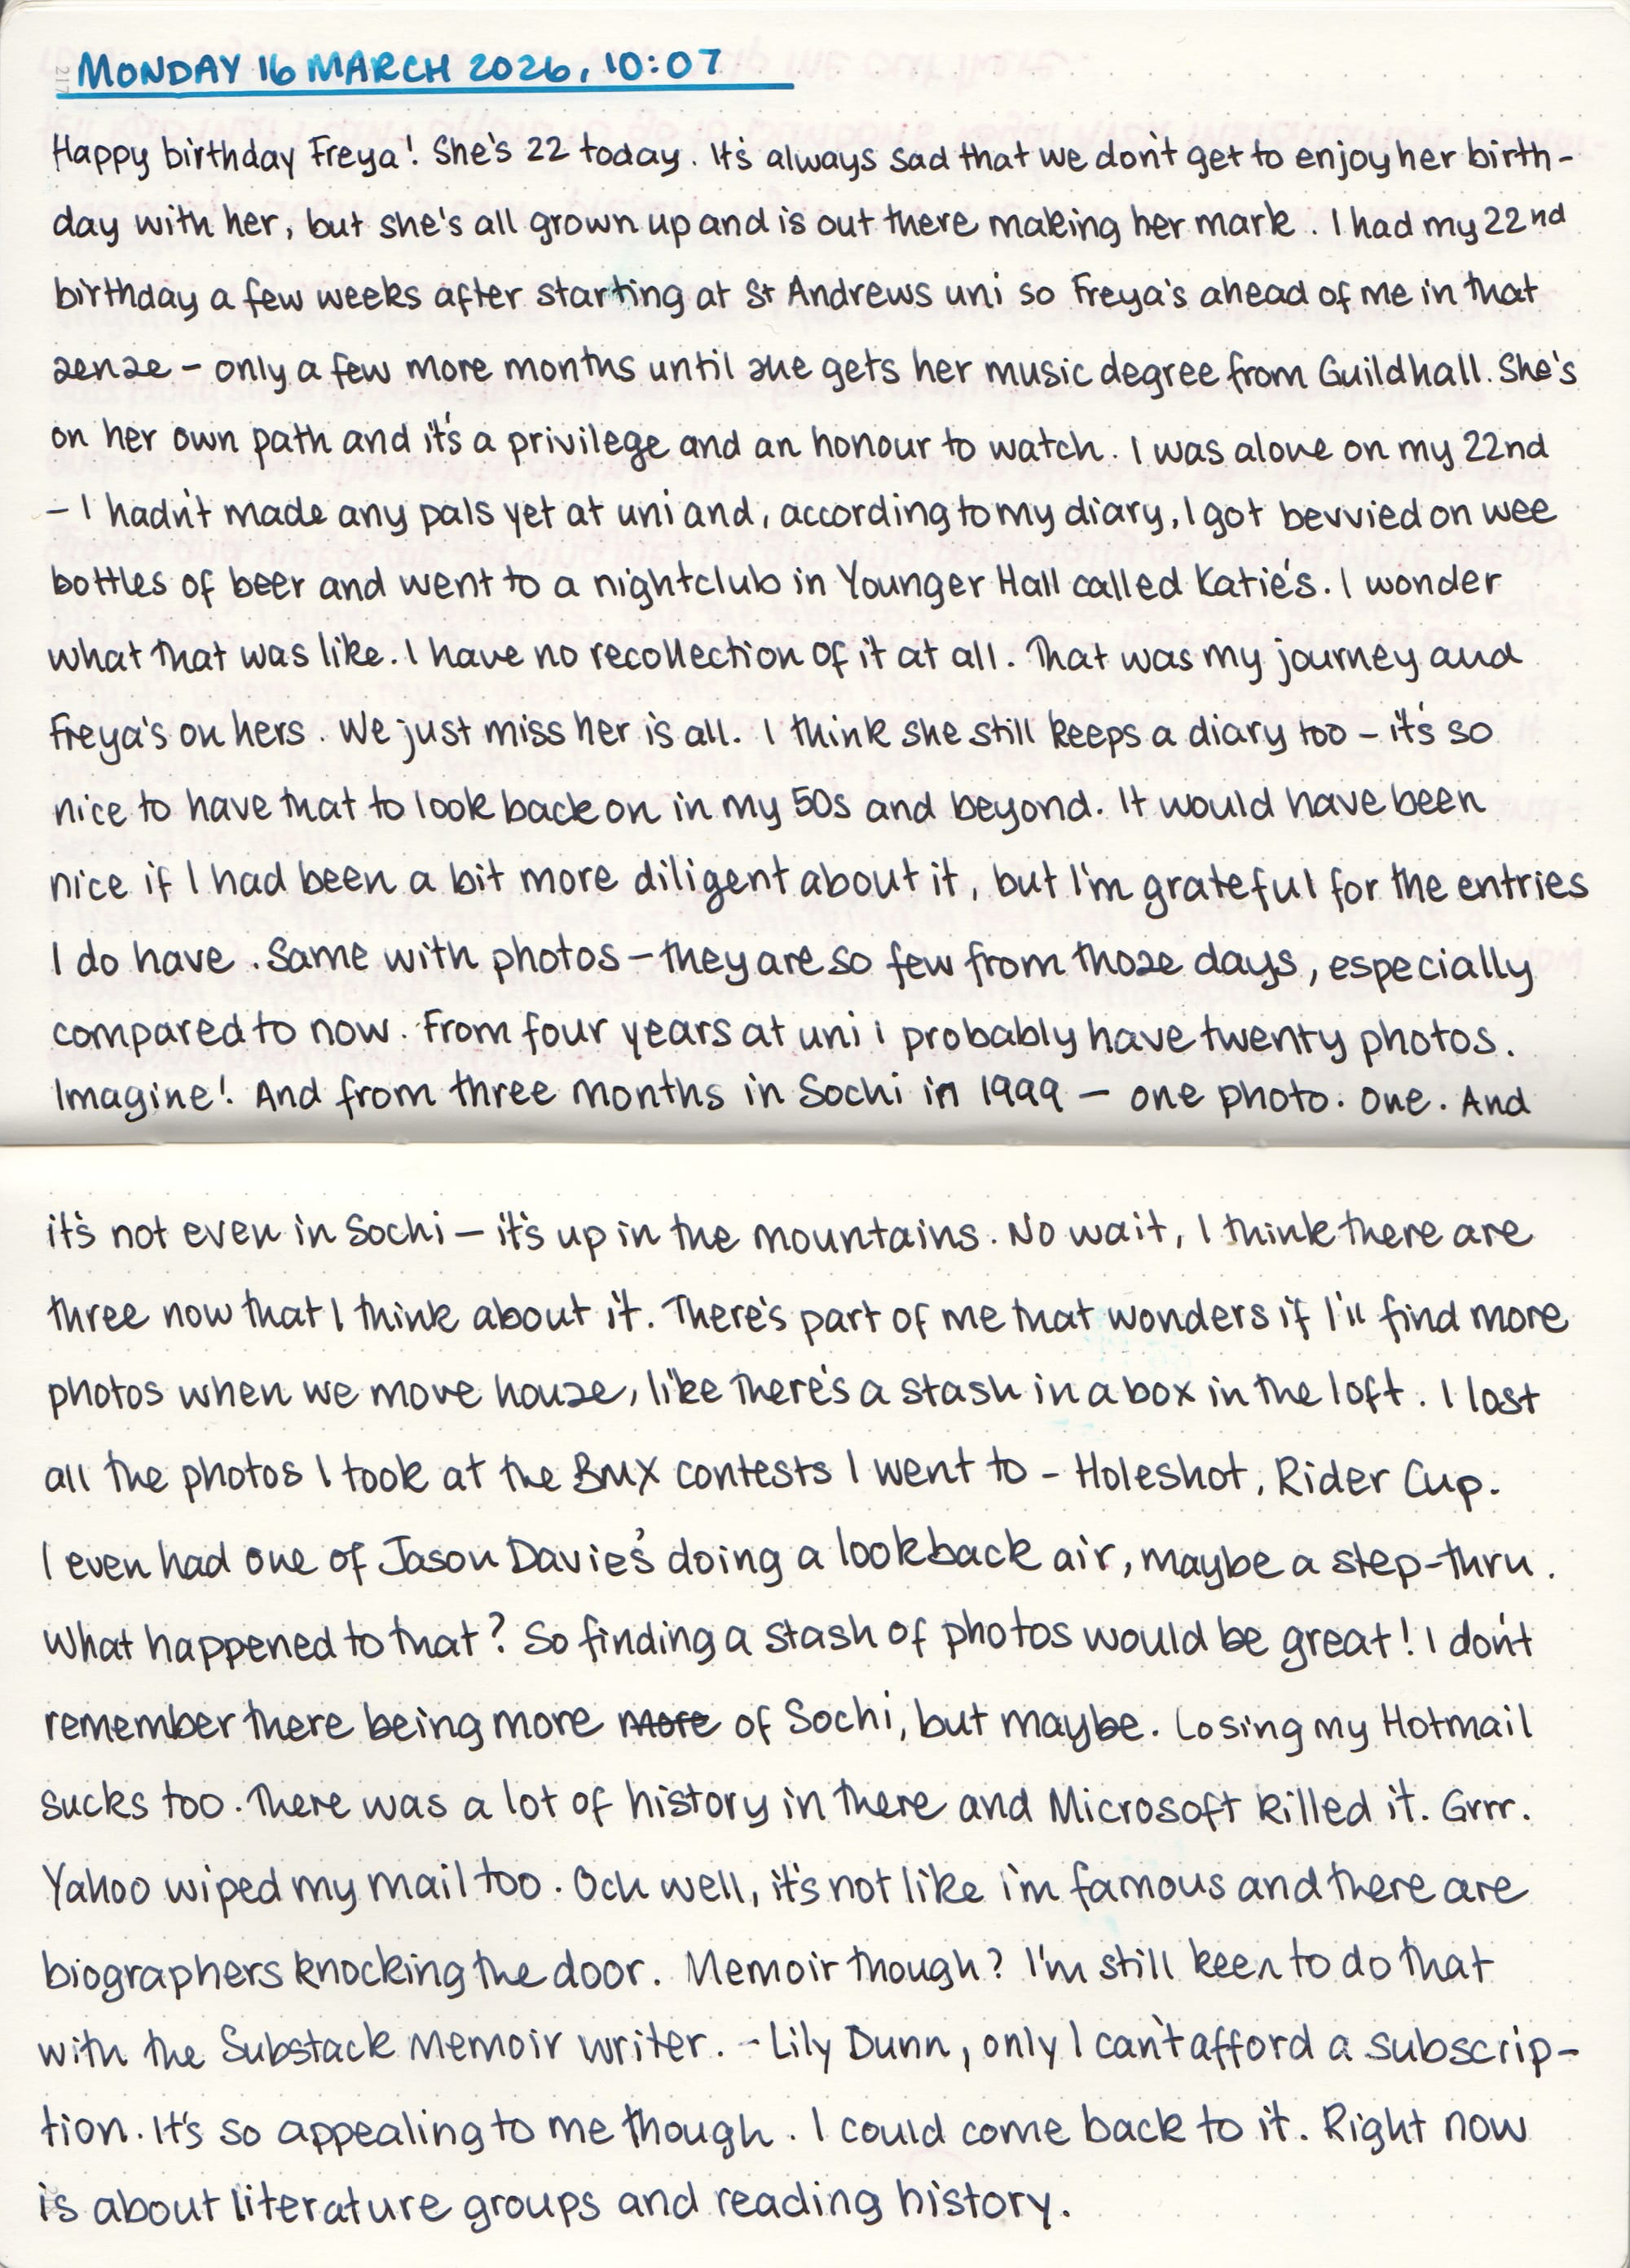 MONDAY 16 MARCH 2026, 10:07
Happy birthday Freya! She's 22 today. It's always sad that we don't get to enjoy her birth-
day with her, but she's all grown up and is out there making her mark. I had my 22nd
birthday a few weeks after starting at St Andrews uni so Freya's ahead of me in that
sense – only a few more months until she gets her music degree from Guildhall. She's
on her own path and it's a privilege and an honour to watch. I was alone on my 22nd
– I hadn't made any pals yet at uni and, according to my diary, I got bevvied on wee
bottles of beer and went to a nightclub in Younger Hall called Katie's. I wonder
what that was like. I have no recollection of it at all. That was my journey and
Freya's on hers. We just miss her is all. I think she still keeps a diary too – it's so
nice to have that to look back on in my 50s and beyond. It would have been
nice if I had been a bit more diligent about it, but I'm grateful for the entries
I do have. Same with photos – they are so few from those days, especially
compared to now. From four years at uni i probably have twenty photos.
Imagine! And from three months in Sochi in 1999 – one photo. One. And
it's not even in Sochi – it's up in the mountains. No wait, I think there are
three now that I think about it. There's part of me that wonders if I'll find more
photos when we move house, like there's a stash in a box in the loft. I lost
all the photos I took at the BMX contests I went to – Holeshot, Rider Cup.
I even had one of Jason Davie's doing a lookback air, maybe a step-thru.
What happened to that? So finding a stash of photos would be great! I don't
remember there being more more of Sochi, but maybe. Losing my Hotmail
sucks too. There was a lot of history in there and Microsoft killed it. Grrr.
Yahoo wiped my mail too. Och well, it's not like i'm famous and there are
biographers knocking the door. Memoir though? I'm still keen to do that
with the Substack memoir writer. – Lily Dunn, only I can't afford a subscrip-
tion. It's so appealing to me though. I could come back to it. Right now
is about literature groups and reading history.